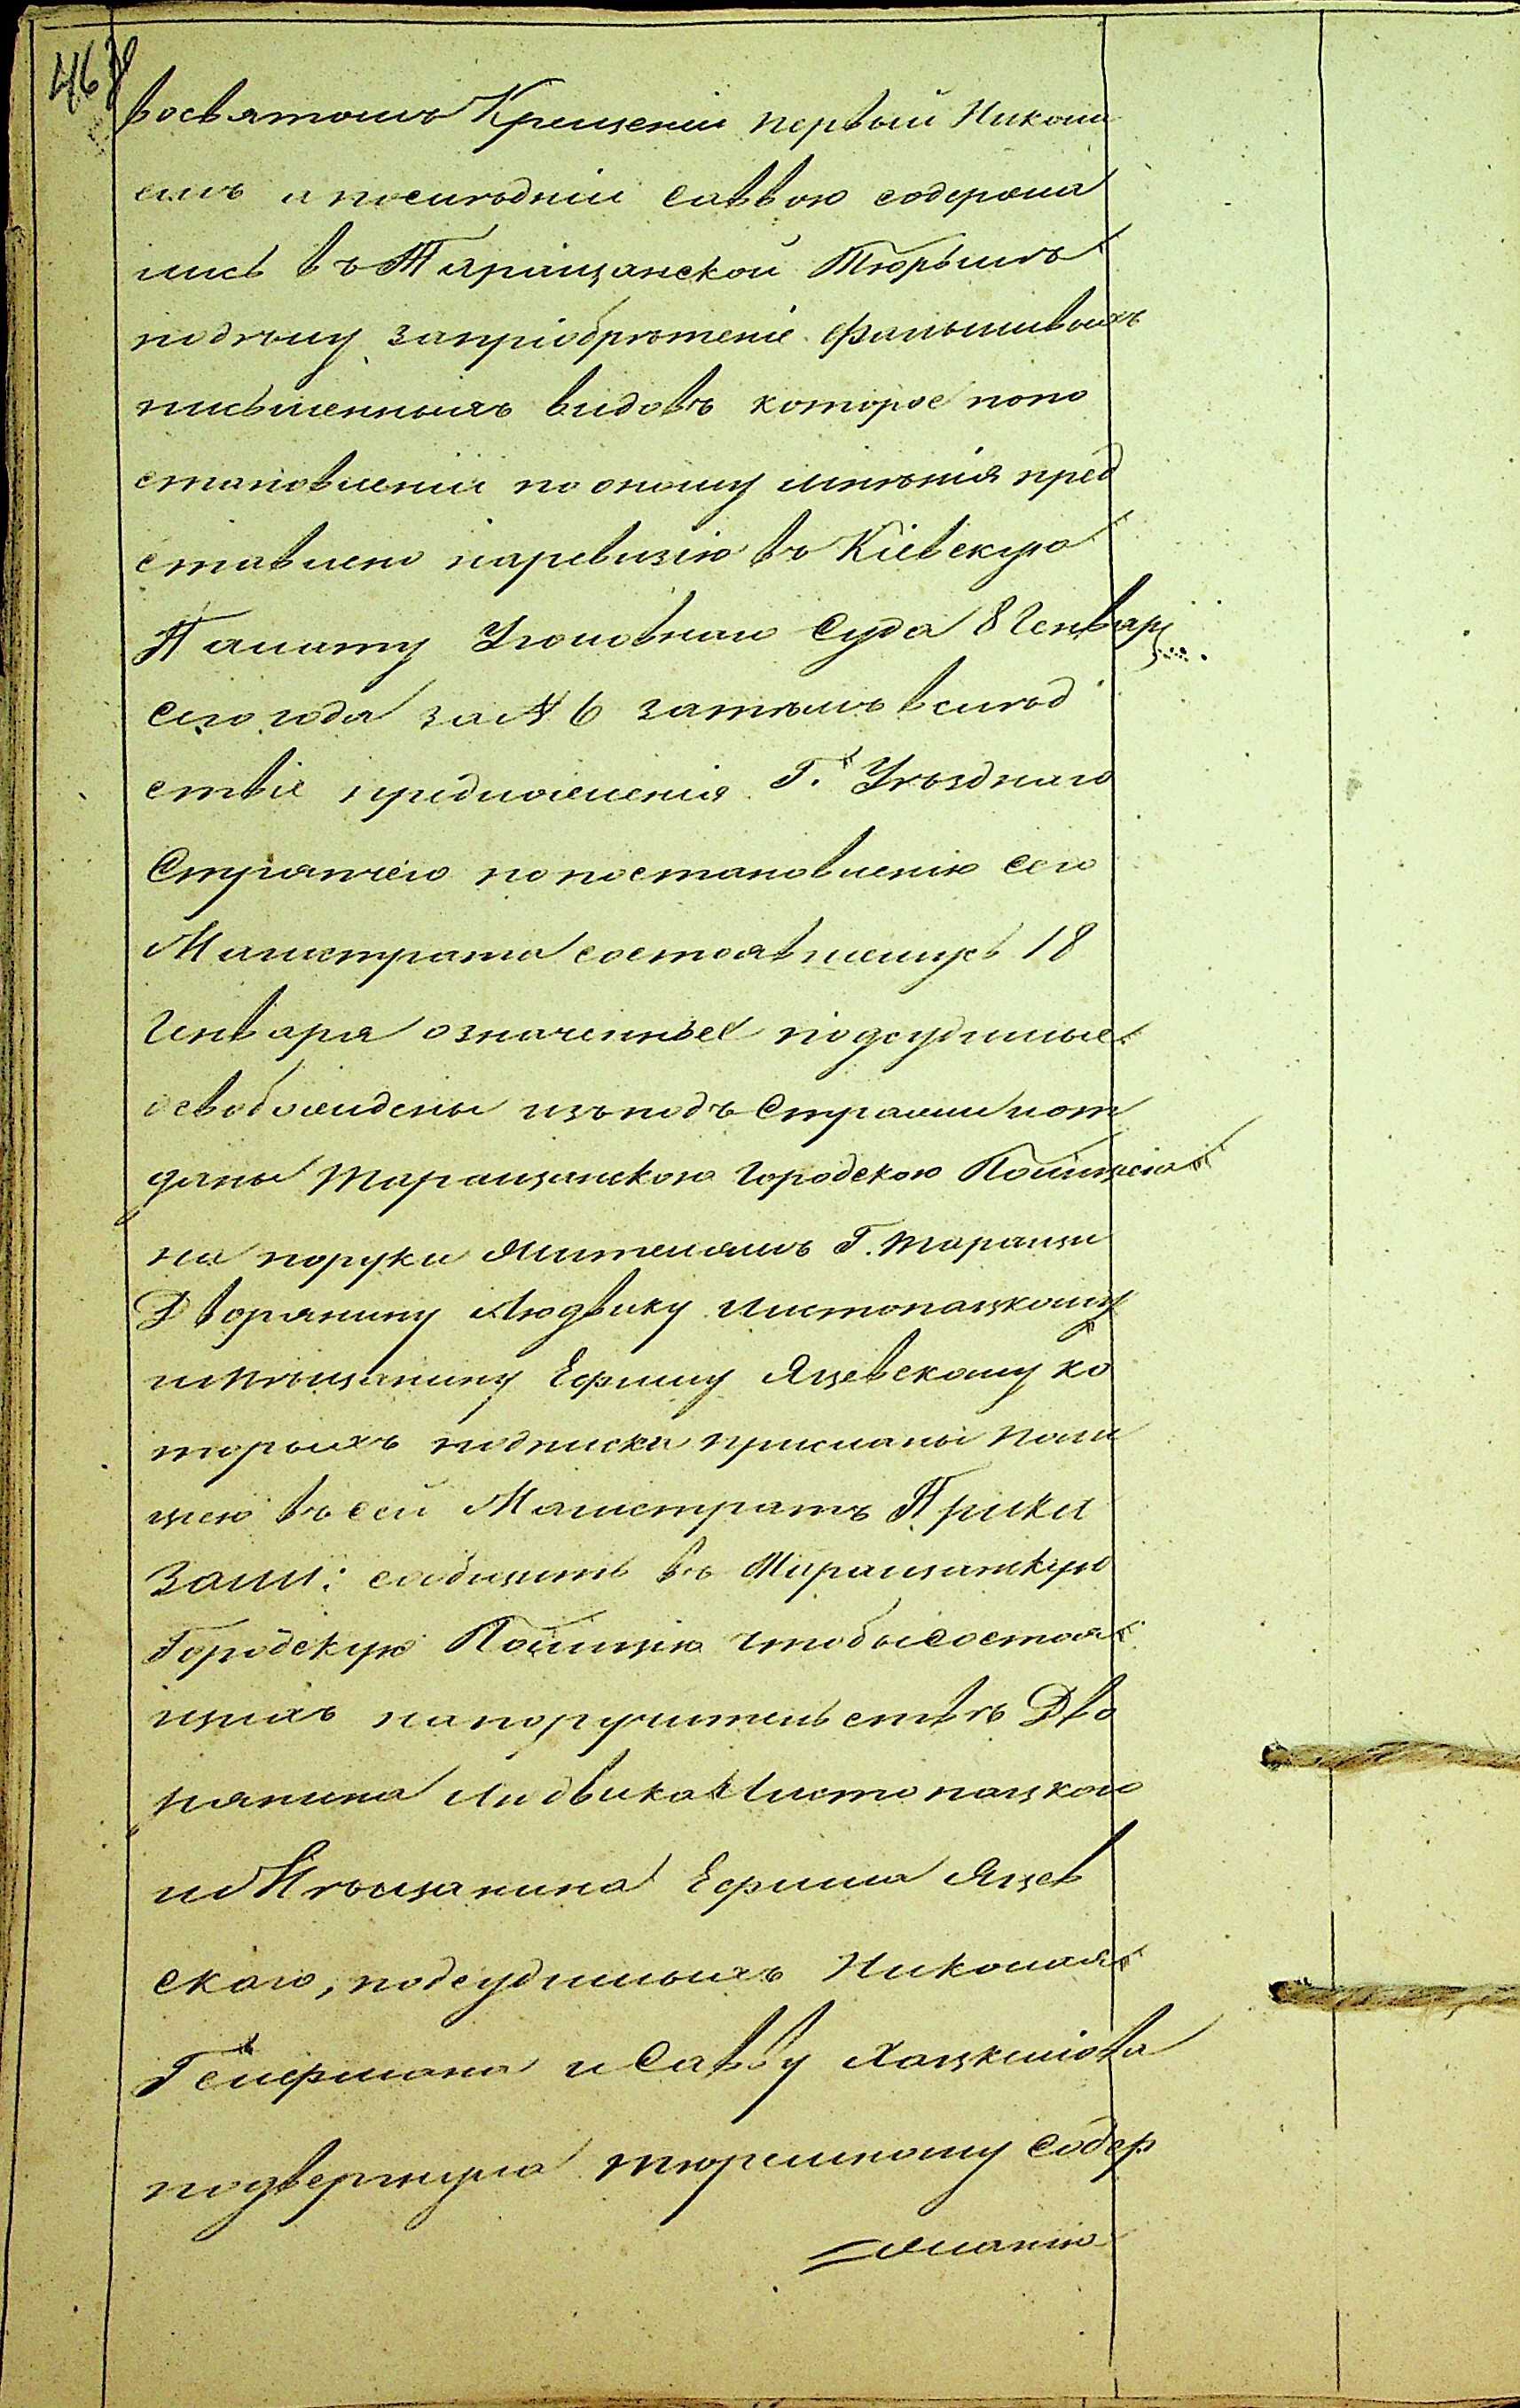 восвятомъ Крещеніи первый Никола
емъ а последній Саввою содержа
лись въ Таращанской Тюрьмѣ
подѣлу запріобрѣтеніе фальшивыхъ
письменныхъ видовъ которое попо
становленіи по оному мнѣнія пред
ставлено наревизію въ Кіевскую
Палату Уголовнаго Суда 8 Генваря
сего года за № 6 затѣмъ вслѣд
ствіе предложенія Г. Уѣзднаго
Стряпчего по постановленію сего
Магистрата состоявшемусь 18
Генваря означенные подсудимые
освобождены изъ подъ Стражи иот
даны Таращанскою Городскою Полиціею
на поруки жителямъ Г. Таращи
Дворянину Людвику Листопацкому
иМѣщанину Ефиму Яцевскому ко
торыхъ подписки присланы Поли
цею въ сей Магистратъ Прика
зали: сообщить въ Таращанскую
Городскую Полицію чтобы состоя
щихъ напоручительствѣ Дво
рянина Людвика Листопацкого
и Мѣщанина Ефима Яцев
ского, подсудимыхъ Николая
Гелермана и Савву Хацкилева
подвергнула тюремному содер
=жанію